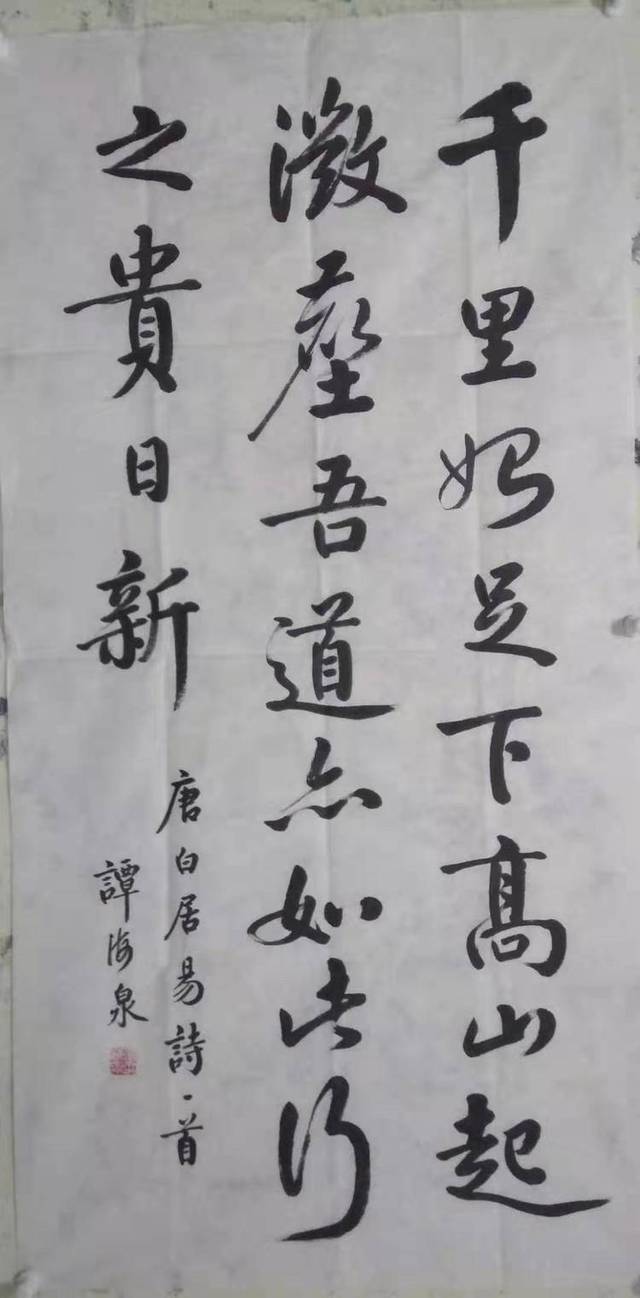 千里始足下高山起
微塵吾道亦如此行
之貴日新
唐白居易詩一首
譚海泉